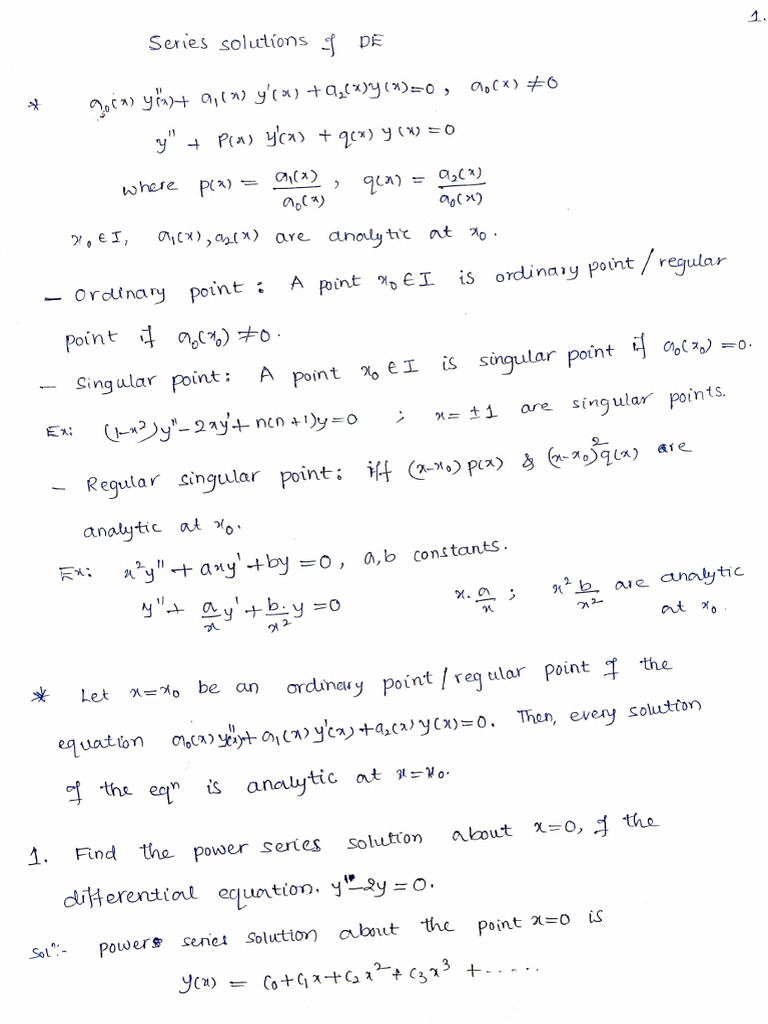 1.
Series solutions of DE
* a₀(x) y''(x) + a₁(x) y'(x) + a₂(x) y(x) = 0, a₀(x) ≠ 0
y'' + P(x) y'(x) + q(x) y(x) = 0
where p(x) = a₁(x)/a₀(x), q(x) = a₂(x)/a₀(x)
x₀ ∈ I, a₁(x), a₂(x) are analytic at x₀.
- Ordinary point: A point x₀ ∈ I is ordinary point / regular
point if a₀(x₀) ≠ 0.
- Singular point: A point x₀ ∈ I is singular point if a₀(x₀) = 0.
Ex: (1-x²)y'' - 2xy' + n(n+1)y = 0 ; x = ±1 are singular points.
- Regular singular point: iff (x-x₀) p(x) & (x-x₀)² q(x) are
analytic at x₀.
Ex: x²y'' + axy' + by = 0, a,b constants.
y'' + a/x y' + b/x² . y = 0 x. a/x ; x² b/x² are analytic
at x₀.
* Let x = x₀ be an ordinary point / regular point of the
equation a₀(x) y''(x) + a₁(x) y'(x) + a₂(x) y(x) = 0. Then, every solution
of the eqⁿ is analytic at x = x₀.
1. Find the power series solution about x=0, of the
differential equation. y'' - 2y = 0.
Solⁿ:- powers series solution about the point x=0 is
y(x) = c₀ + c₁x + c₂x² + c₃x³ + .....